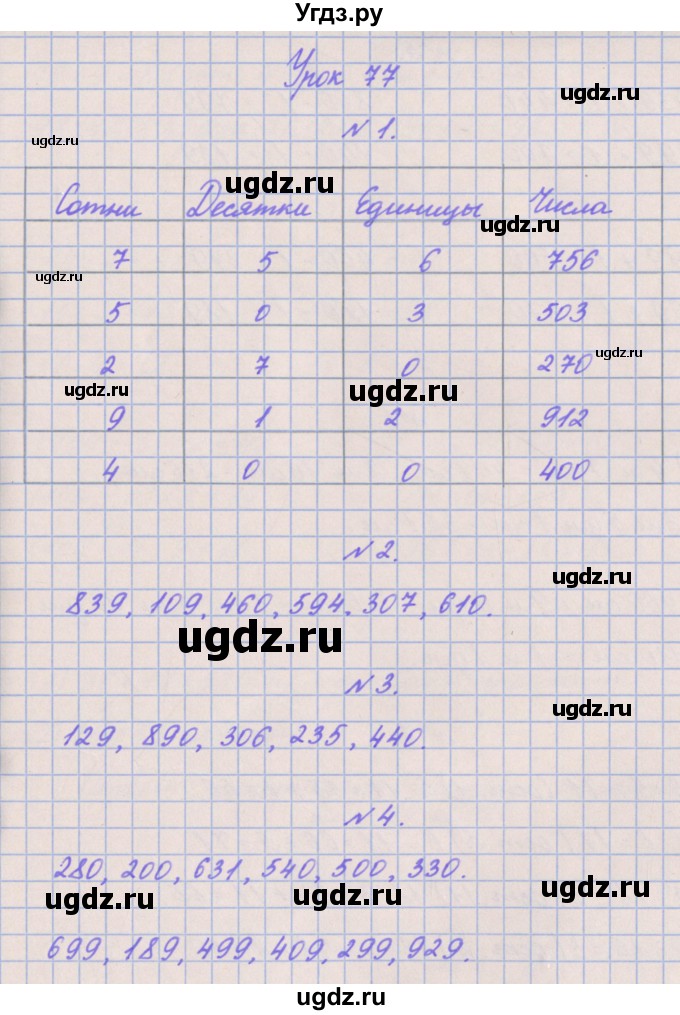 Угдз.ру
Урок 77
ugdz.ru
N 1.
ugdz.ru
ugdz.ru
Сотни Десятки Единицы Числа
ugdz.ru
7 5 6 756
ugdz.ru
5 0 3 503
2 7 0 270
ugdz.ru
ugdz.ru
ugdz.ru
9 1 2 912
4 0 0 400
N 2.
ugdz.ru
839, 109, 460, 594. 307, 610.
ugdz.ru
N 3.
ugdz.ru
129, 890, 306, 235, 440.
N 4.
280, 200, 631, 540, 500, 330.
ugdz.ru
ugdz.ru
ugdz.ru
699, 189, 499, 409, 299, 929.
ugdz.ru